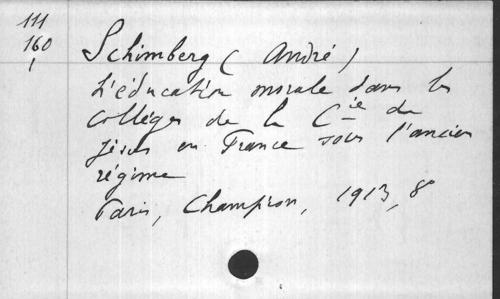 111
160
1
Schimberg (André)
L'éducation morale dans les
collèges de la Cie de
Jésus en France sous l'ancien
régime
Paris, Champion, 1913, 8°